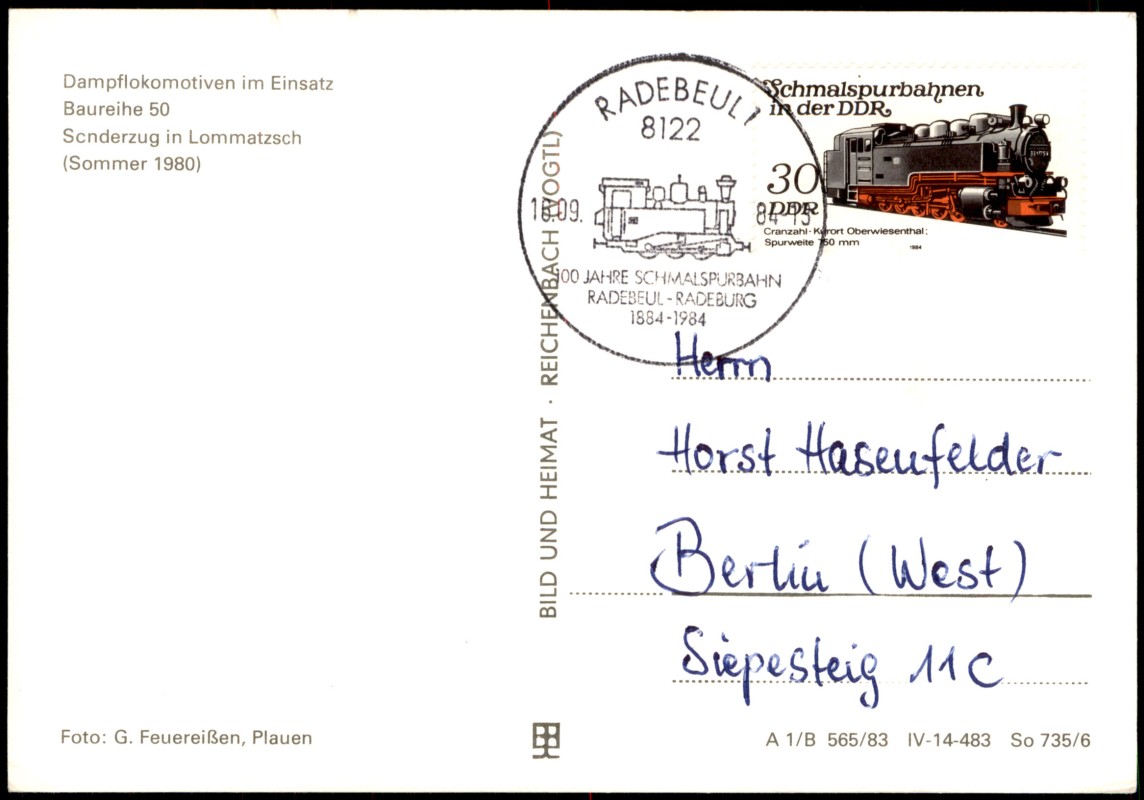 Dampflokomotiven im Einsatz
Baureihe 50
Scnderzug in Lommatzsch
(Sommer 1980)
RADEBEUL 1
8122
09.
84-15
100 JAHRE SCHMALSPURBAHN
RADEBEUL-RADEBURG
1884-1984
Schmalspurbahnen
in der DDR
30
DDR
Cranzahl-Kurort Oberwiesenthal;
Spurweite 750 mm
1984
BILD UND HEIMAT · REICHENBACH (VOGTL)
Herrn
Horst Hasenfelder
Berlin (West)
Siepesteig 11C
Foto: G. Feuereißen, Plauen
A 1/B 565/83 IV-14-483 So 735/6